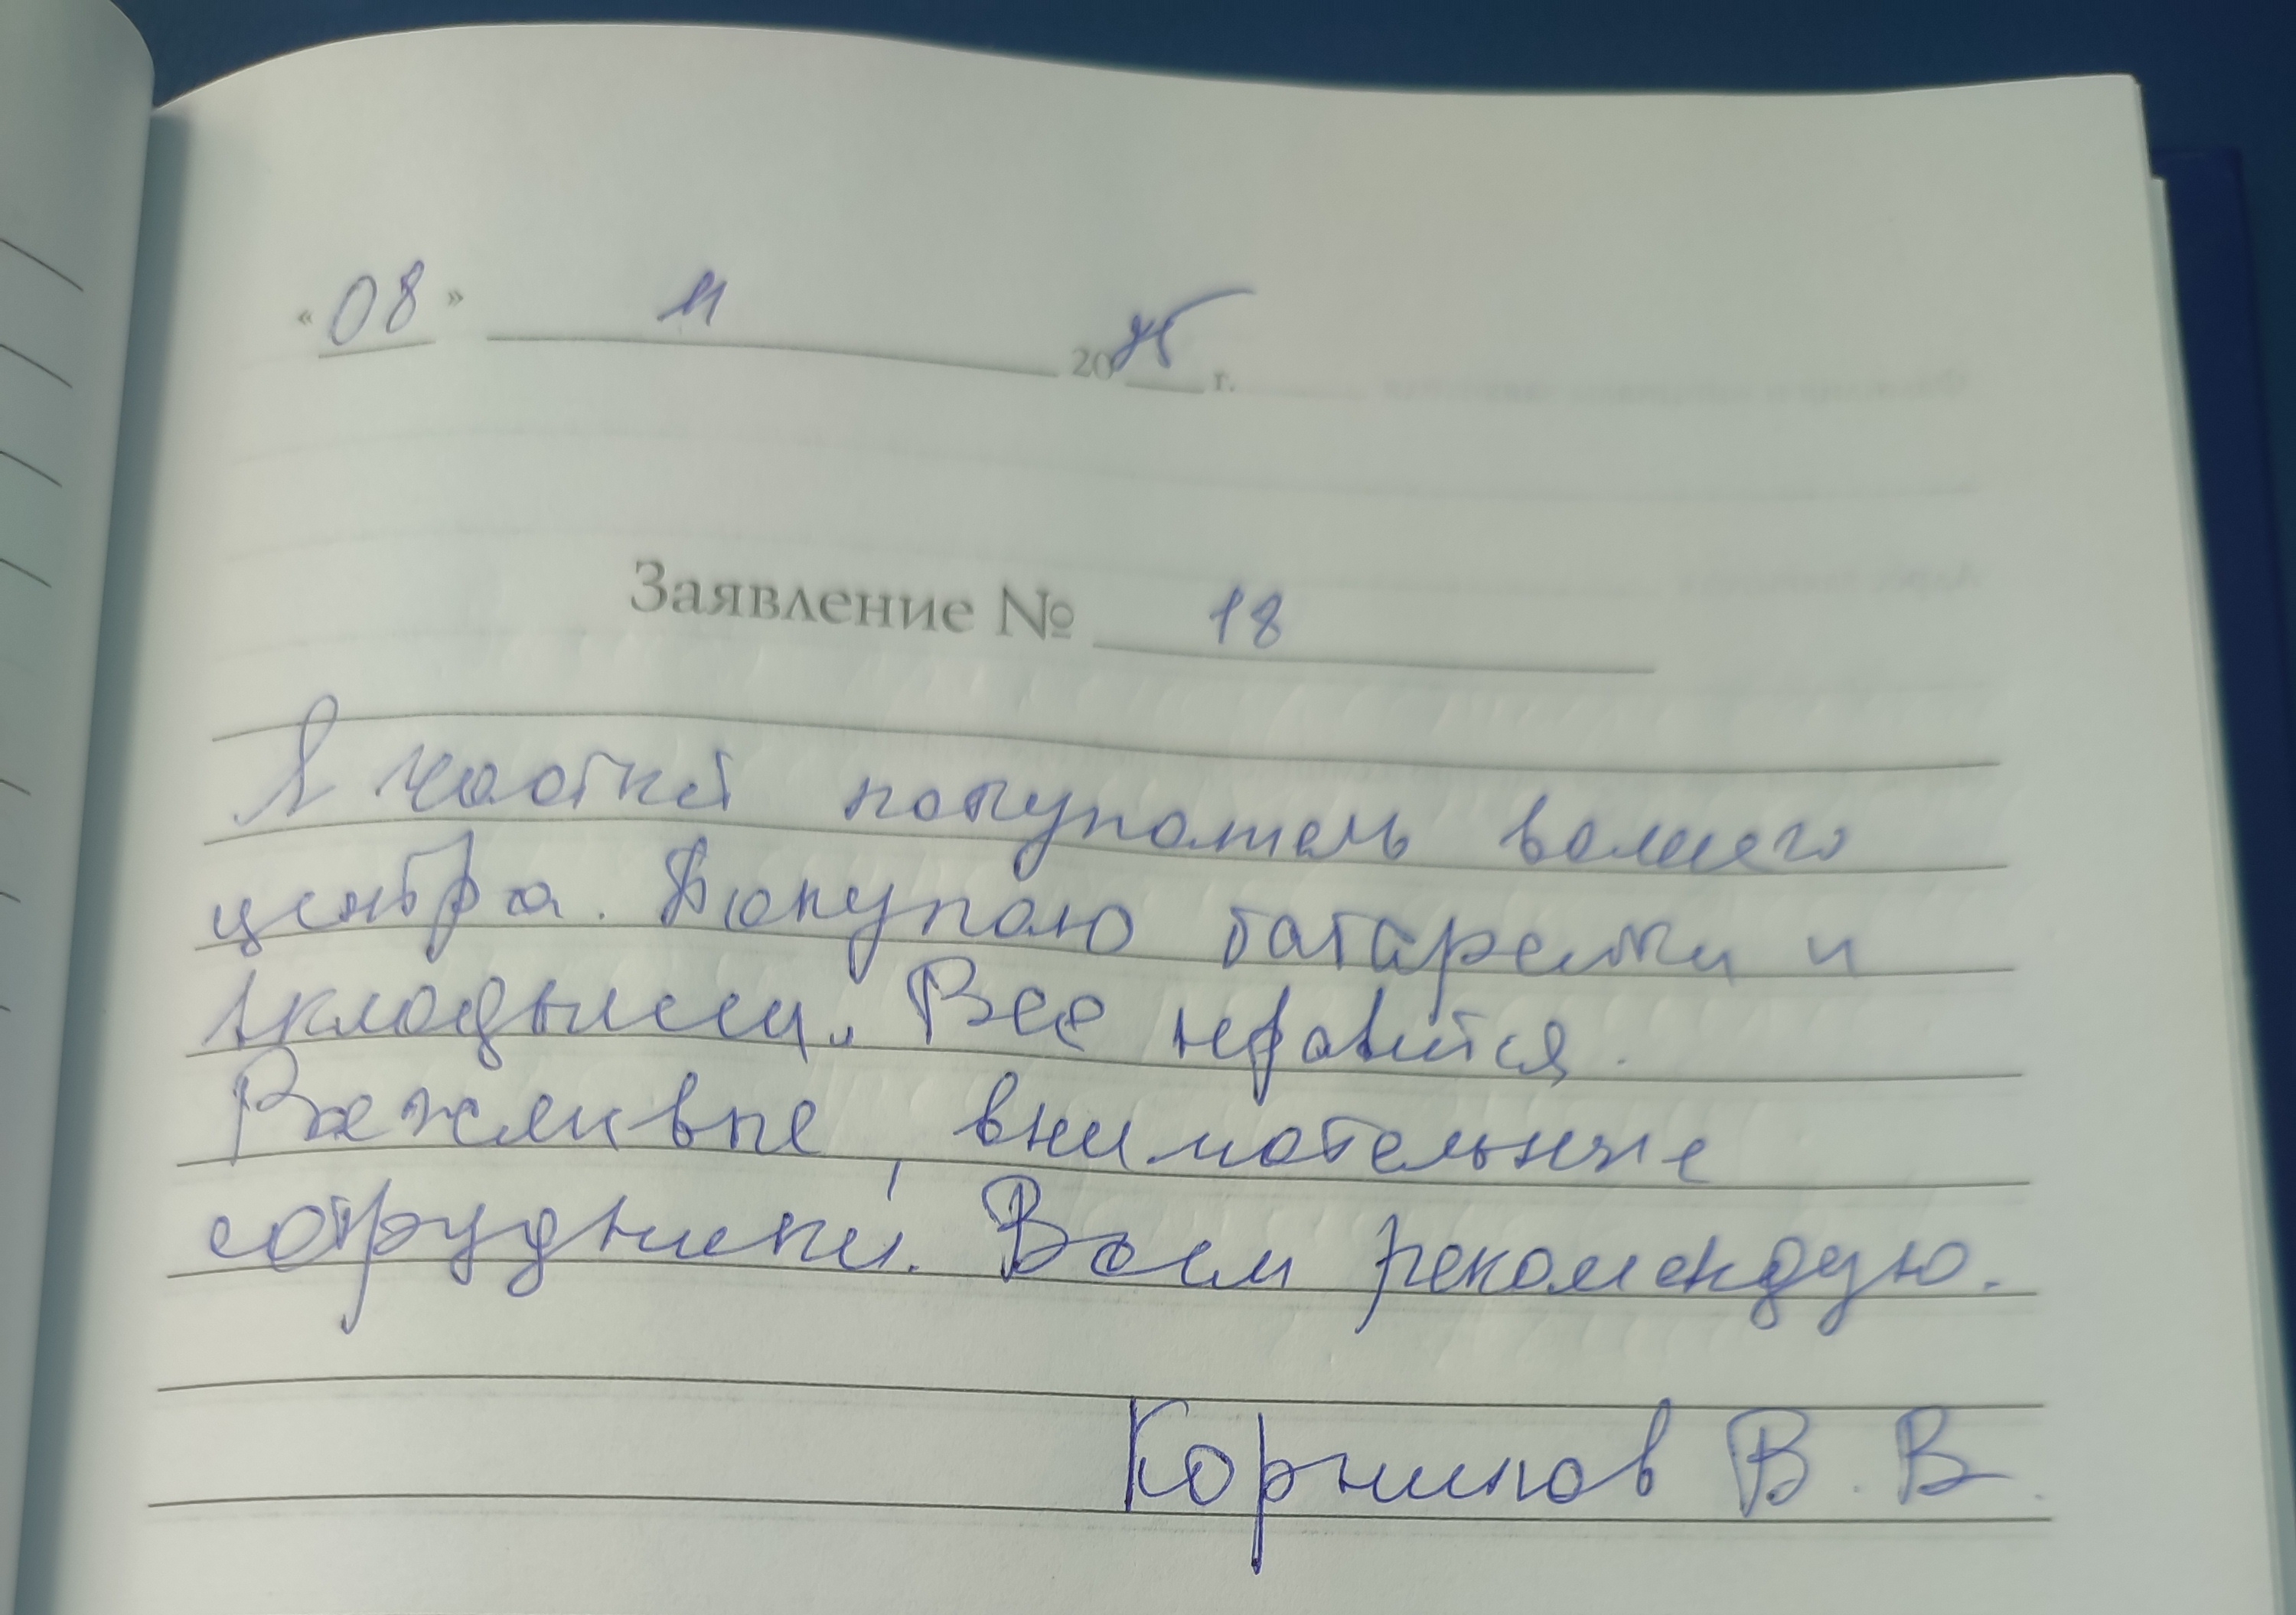 «08» 11 2025 г.
Заявление № 18
Я частый покупатель вашего
центра. Покупаю батарейки и
вкладыши. Все нравится.
Вежливые, внимательные
сотрудники. Всем рекомендую.
Корников В. В.